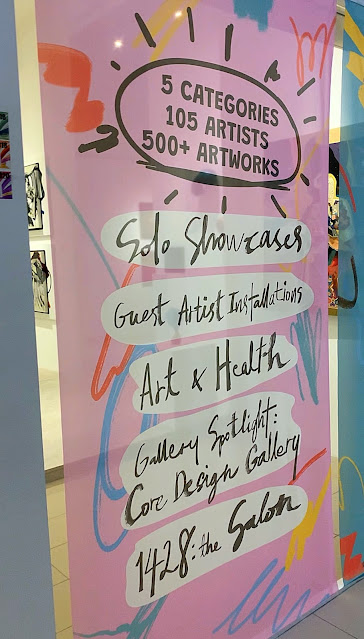 5 CATEGORIES
105 ARTISTS
500+ ARTWORKS
Solo Showcases
Guest Artist Installations
Art & Health
Gallery Spotlight:
Core Design Gallery
1428: the Salon